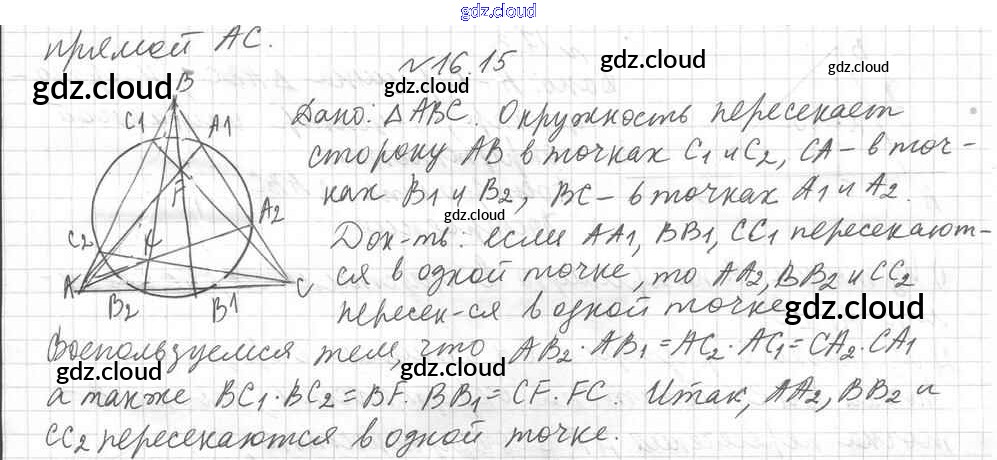 gdz.cloud
прямой AC.
№16.15
gdz.cloud
gdz.cloud
B
C1
A1
F
A2
C2
A
C
B2
B1
Дано: △ABC. Окружность пересекает
сторону AB в точках C1 и C2, CA – в точ-
ках B1 и B2, BC – в точках A1 и A2.
gdz.cloud
Док-ть: если AA1, BB1, CC1 пересекают-
ся в одной точке, то AA2, BB2 и CC2
gdz.cloud
gdz.cloud
пересек-ся в одной точке.
gdz.cloud
Воспользуемся тем, что AB2 · AB1 = AC2 · AC1 = CA2 · CA1
gdz.cloud
gdz.cloud
а также BC1 · BC2 = BF · BB1 = CF · FC. Итак, AA2, BB2 и
CC2 пересекаются в одной точке.
gdz.cloud
gdz.cloud